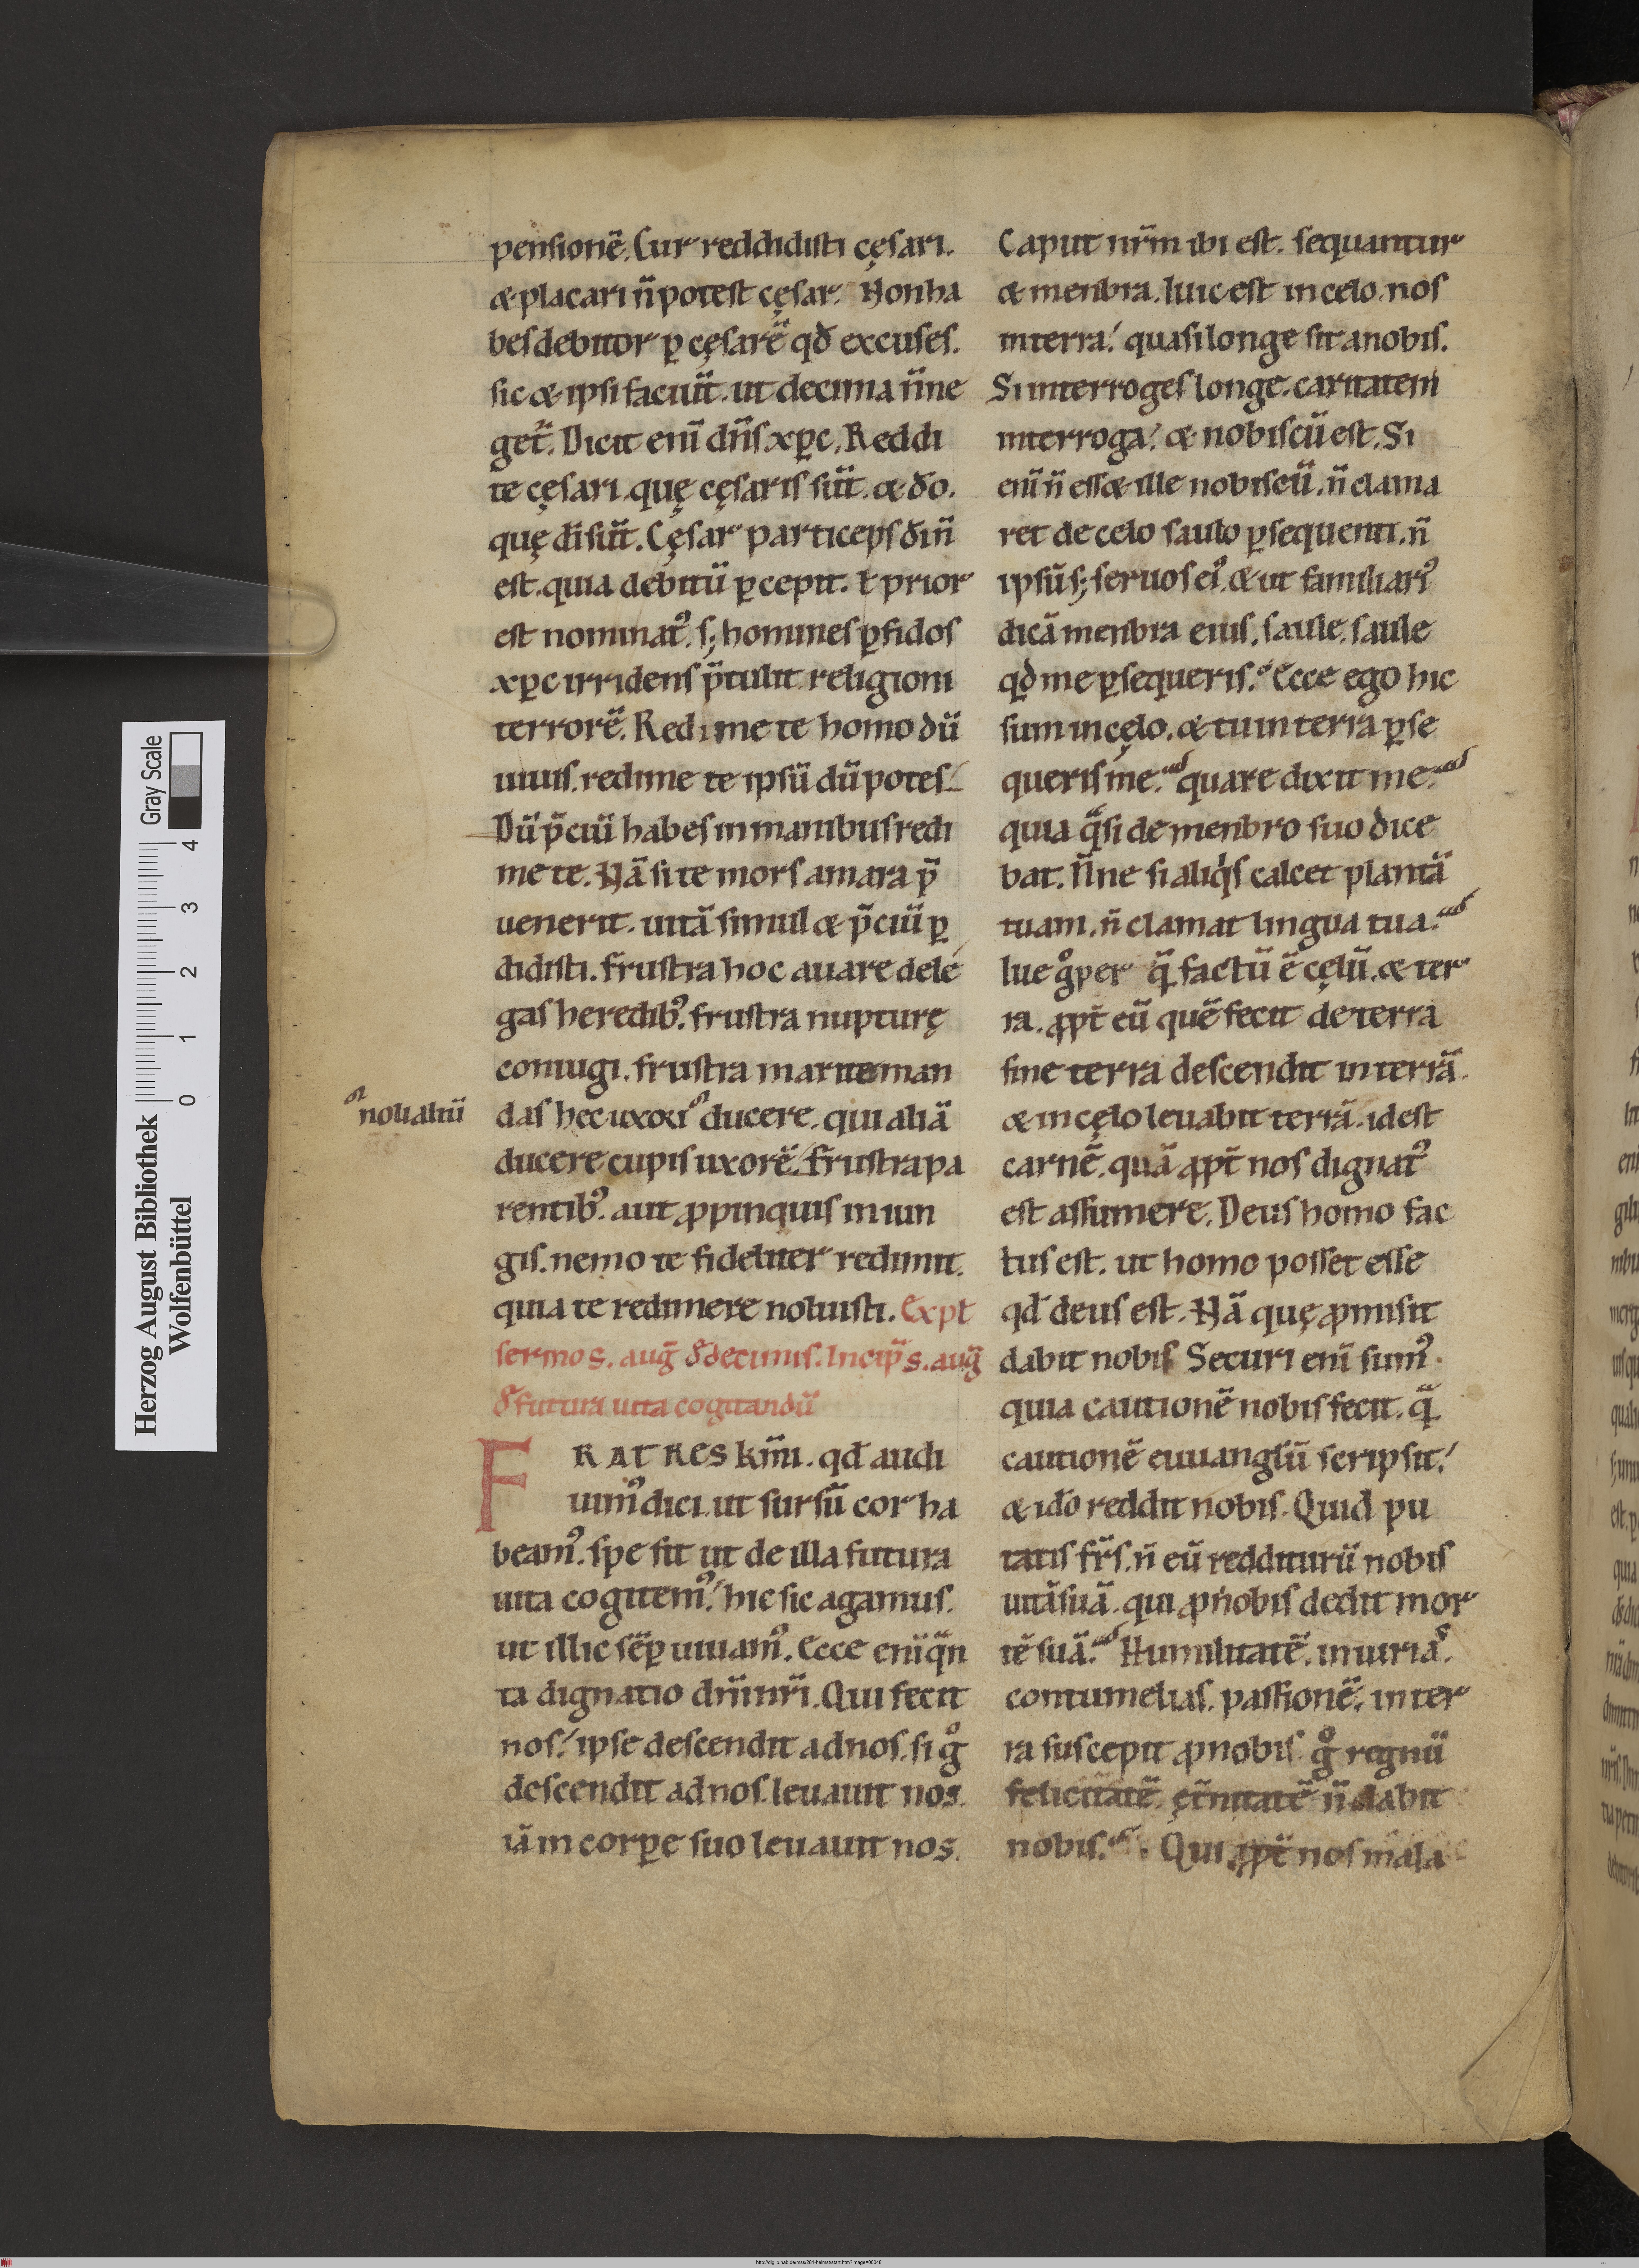 pensionē. Cur reddidisti cęsari.
& placari n̄ potest cęsar. Non ha
bes debitor ꝑ cęsarē qđ excuses.
sic & ipsi faciūt. ut decima n̄ ne
get̄. Dicit enī dn̄s xp̄c. Reddi
te cęsari. quę cęsaris sūt. & do.
quę dī sūt. Cęsar particeps dī n̄
est. quia debitū ꝑcepit. ł prior
est nominat᷒. s; homines ꝑfidos
xp̄c irridens p̄tulit religioni
terrorē. Redime te homo dū
uiuis. redime te ipsū dū potes.
Dū p̄ciū habes in manibus redi
me te. Nā si te mors amara p̄
uenerit. uitā simul & p̄ciū ꝑ
didisti. frustra hoc auare dele
gas heredib᷒. frustra nupturę
coniugi. frustra marite man
das hec uxori ducere. qui aliā
ducere cupis uxorē. frustra pa
rentib᷒. aut ꝓpinquis iniun
gis. nemo te fideliter redimit.
quia te redimere noluisti. Expt
sermo s. auḡ đdecimus. Incip̄ s. auḡ
đ futura uita cogitandū
FRATRES km̄i. qđ audi
uim᷒ dici. ut sursū cor ha
beam᷒. spe sit ut de illa futura
uita cogitem᷒. hic sic agamus.
ut illic sēꝑ uiuam᷒. Ecce enī qn̄
ta dignatio dn̄i nr̄i. Qui fecit
nos. ipse descendit ad nos. si g̊
descendit ad nos. leuauit nos.
iā in corꝑe suo leuauit nos.
noualiū
Caput nr̄m ibi est. sequantur
& menbra. luic est in celo. nos
in terra. quasi longe sit a nobis.
Si interroges longe. caritatem
interroga. & nobiscū est. Si
enī n̄ ess& ille nobiscū. n̄ clama
ret de celo saulo ꝑsequenti. n̄
ipsū s; seruos ei᷒. & ut familiari᷒
dicā menbra eius. saule. saule
qđ me ꝑsequeris. Ecce ego hic
sum in cęlo. & tu in terra ꝑse
queris me. quare dixit me.
quia q̄si de menbro suo dice
bat. N̄ne si aliqis calcet plantā
tuam. n̄ clamat lingua tua.
lue g̊ per q̄ factū ē cęlū. & ter
ra. ꝓpt̄ eū quē fecit de terra
sine terra descendit in terrā.
& in cęlo leuabit terrā. id est
carnē. quā ꝓpt̄ nos dignat᷒
est assumere. Deus homo fac
tus est. ut homo posset esse
qđ deus est. Nā quę ꝓmisit
dabit nobis Securi enī sum᷒.
quia cautionē nobis fecit. q̄
cautionē euuanglīū scripsit.
& ido reddit nobis. Quid pu
tatis fr̄s. n̄ eū redditurū nobis
uitā suā. qui ꝓ nobis dedit mor
tē suā. Humilitatē. iniurias.
contumelias. passionē. in ter
ra suscepit ꝓ nobis. g̊ regnū
felicitatē. ęt̄nitatē n̄ dabit
nobis. Qui ꝓpt̄ nos mala
Herzog August Bibliothek
Wolfenbüttel
0 1 2 3 4
Gray Scale
http://diglib.hab.de/mss/281-helmst/start.htm?image=00048